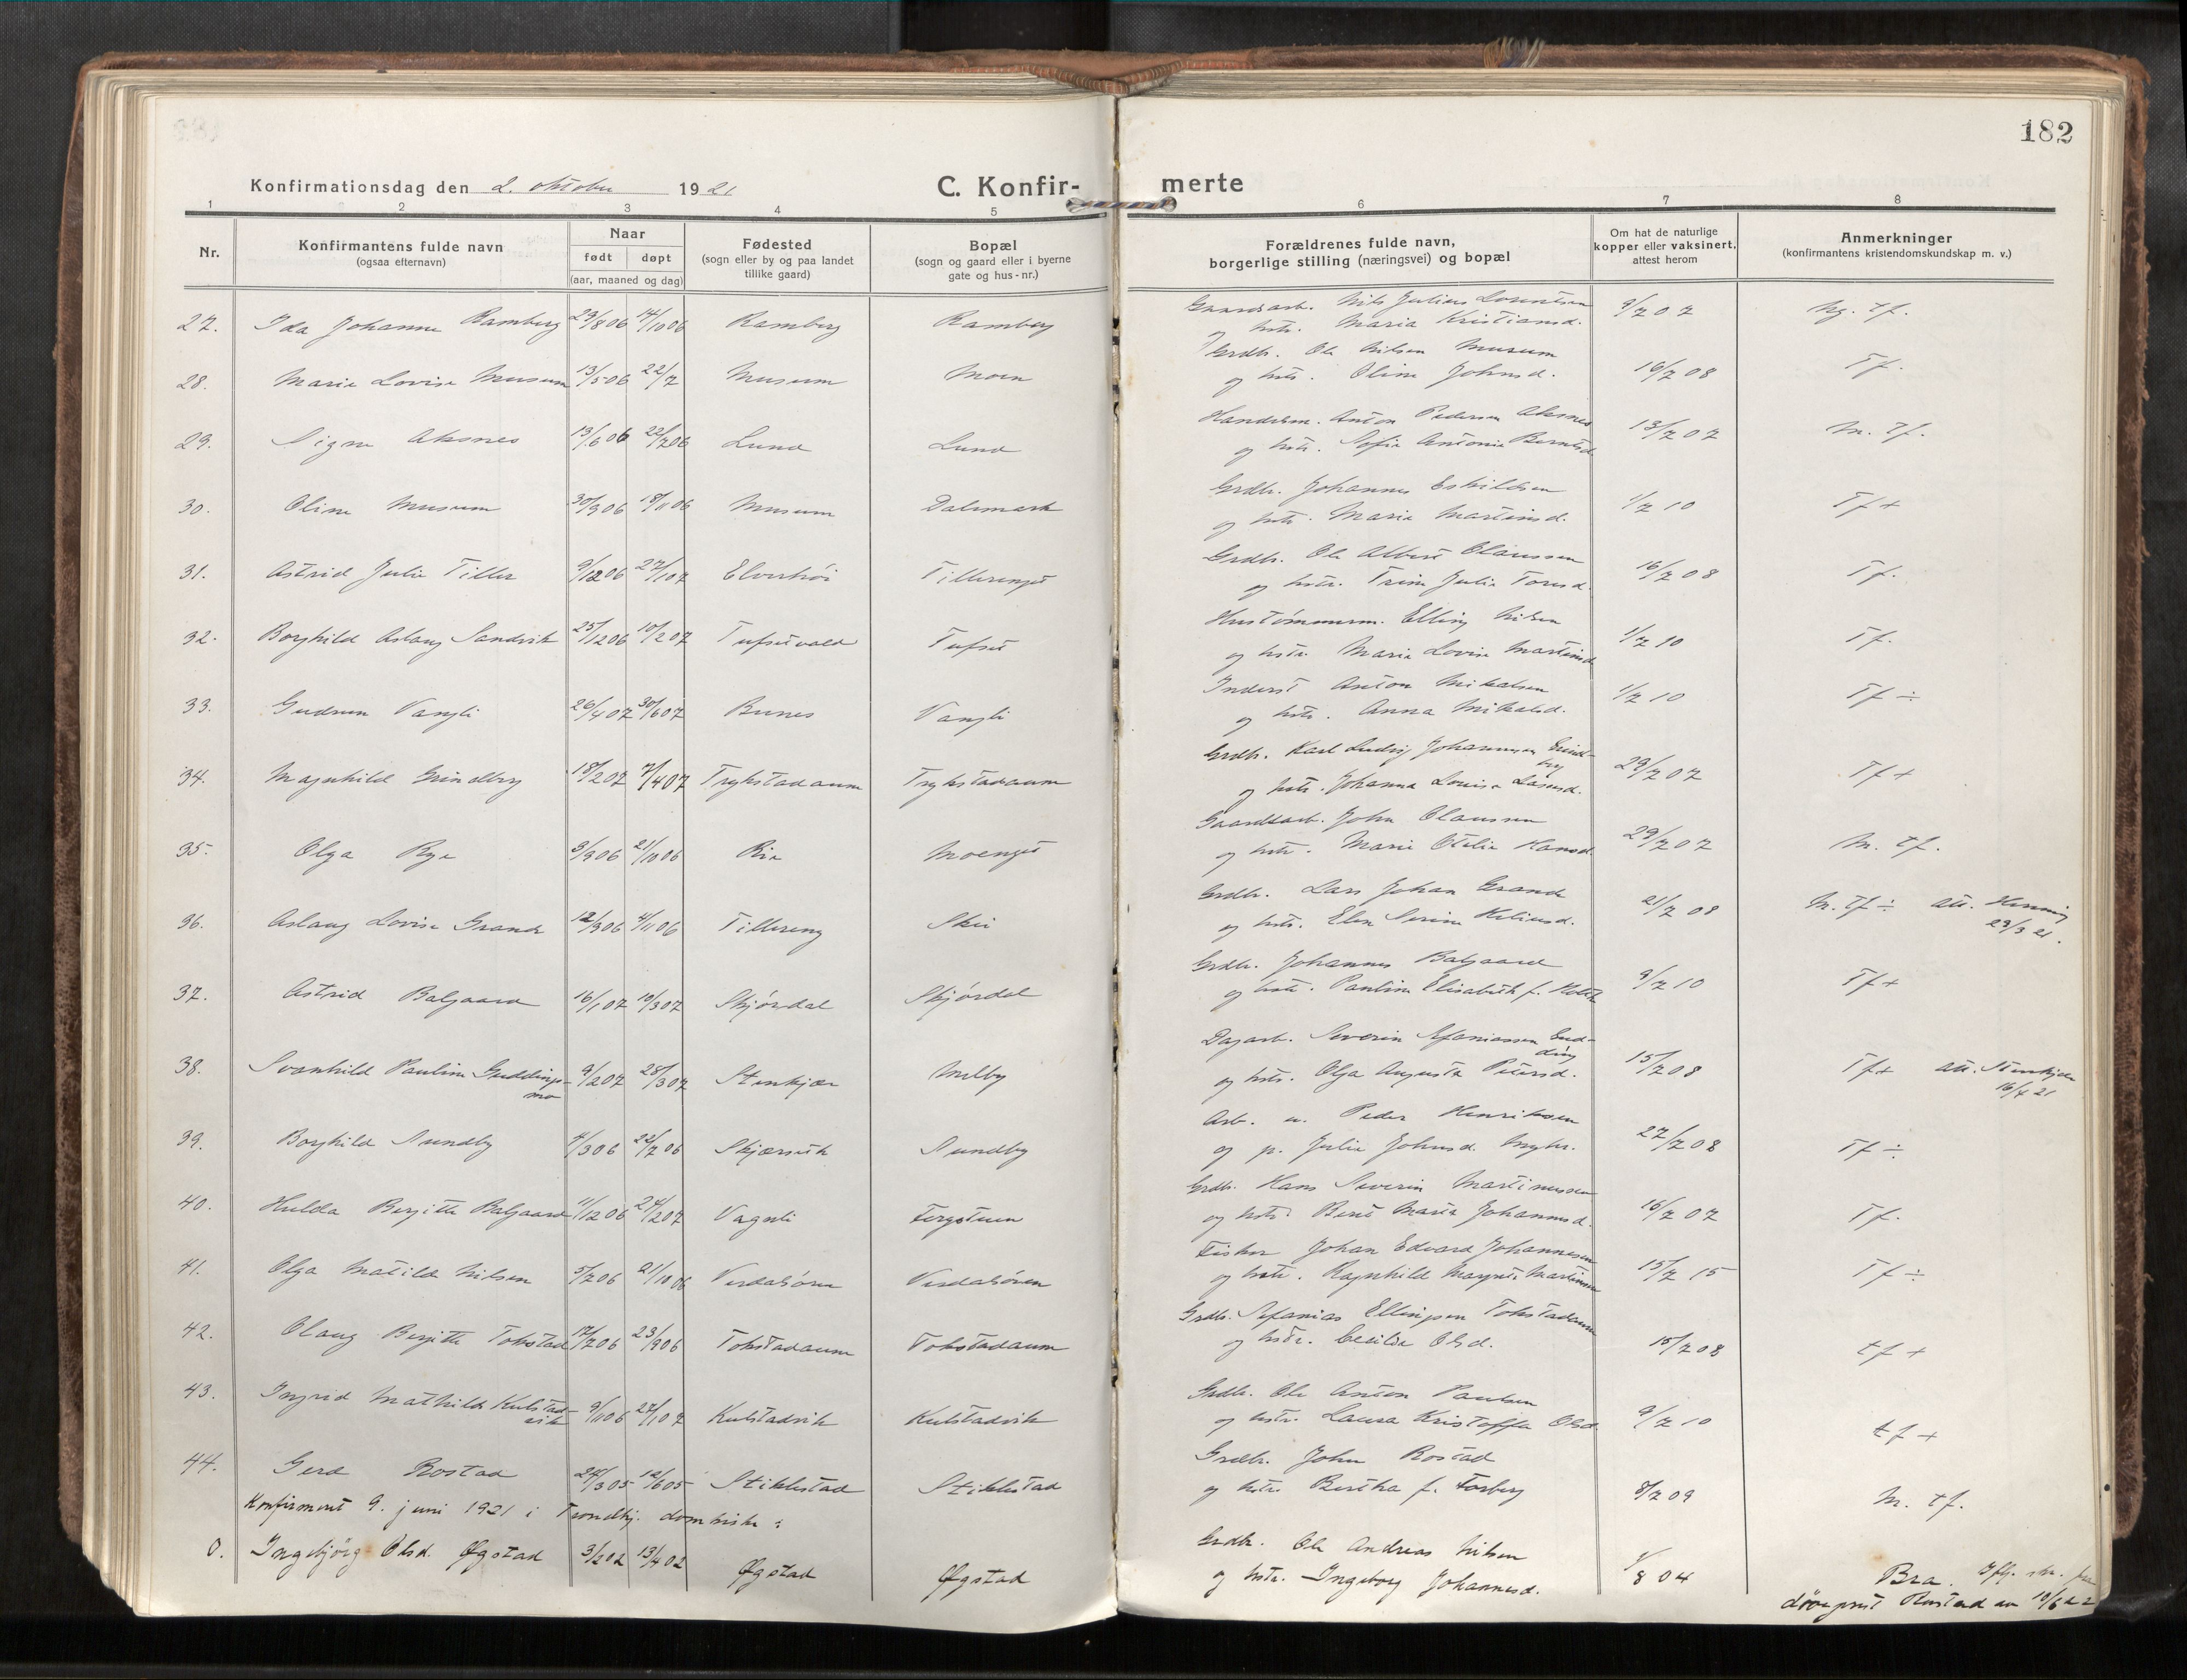 182
Konfirmationsdag den 2. oktober 1921
C. Konfir-
merte
1 2 3 4 5 6 7 8
Nr.
Konfirmantens fulde navn
(ogsaa efternavn)
Naar
født døpt
(aar, maaned og dag)
Fødested
(sogn eller by og paa landet
tillike gaard)
Bopæl
(sogn og gaard eller i byerne
gate og hus-nr.)
Forældrenes fulde navn,
borgerlige stilling (næringsvei) og bopæl
Om hat de naturlige
kopper eller vaksinert,
attest herom
Anmerkninger
(konfirmantens kristendomskundskap m. v.)
27. Ida Johanne Ramberg 29/8 06 14/10 06 Ramberg Ramberg
Gaardsarb. Nils Julius Lorentsen
og hstr. Maria Kristiansd. 9/7 07 Ng. tf.
28. Marie Lovise Musum 13/5 06 22/7 Musum Moen
Grdbr. Ole Nilsen Musum
og hstr. Oline Johnsd. 16/7 08 Tf.
29. Signe Aksnes 13/6 06 22/7 06 Lund Lund
Handelsm. Anton Pedersen Aksnes
og hstr. Sofie Antonie Berntsd. 13/7 07 M. tf.
30. Oline Musum 30/9 06 18/11 06 Musum Dalemark
Grdbr. Johannes Eskildsen
og hstr. Maria Martinsd. 1/7 10 Tf +
31. Astrid Julie Tiller 9/12 06 27/1 07 Elverhöi Tillerenget
Grdbr. Ole Albert Olaussen
og hstr. Trine Julie Toresd. 16/7 08 Tf.
32. Borghild Aslaug Sandvik 25/12 06 10/2 07 Tufsetvald Tufset
Hustömmerm. Elling Nilsen
og hstr. Marie Lovise Martinsd. 1/7 10 Tf.
33. Gudrun Vangli 26/4 07 30/6 07 Bunes Vangli
Inderst Anton Mikalsen
og hstr. Anna Mikalsd. 1/7 10 Tf ÷
34. Magnhild Grindberg 18/2 07 7/4 07 Trykstadaunn Trykstadaunn
Grdbr. Karl Ludvig Johannesen Grind-
berg
og hstr. Johanna Lovise Larsd. 29/7 07 Tf +
35. Olga Rye 3/9 06 21/10 06 Rie Moenget
Gaardsarb. John Olaussen
og hstr. Marie Otelie Hansd. 29/7 07 M. tf.
36. Aslaug Lovise Grande 12/9 06 4/11 06 Tillereng Skei
Grdbr. Lars Johan Grande
og hstr. Elen Serine Heliusd. 21/7 08 M. Tf ÷ att. Henning
23/3 21.
37. Astrid Balgaard 16/1 07 10/3 07 Skjördal Skjördal
Grdbr. Johannes Balgaard
og hstr. Pauline Elisabeth f. Holte 9/7 10 Tf +
38. Svanhild Pauline Guddings-
mo 9/2 07 28/3 07 Stenkjær Melby
Dagarb. Severin Sefaniassen Gud-
ding
og hstr. Olga Augusta Petersd. 15/7 08 Tf + att. Stenkjær
16/4 21
39. Borghild Sundby 4/3 06 22/7 06 Skjærsvik Sundby
Arb. u. Peder Henriksen
og p. Julie Johnsd. Myhr. 27/7 08 Tf ÷
40. Hulda Bergitte Balgaard 11/12 06 24/2 07 Vagnli Fergstuen
Grdbr. Hans Severin Martinussen
og hstr. Beret Maria Johannesd. 16/7 07 Tf.
41. Olga Matilde Nilsen 5/7 06 21/10 06 Verdalsören Verdalsören
Fisker Johan Edvard Johannesen
og hstr. Ragnhild Margrete Martinsen 15/7 15 Tf ÷
42. Olaug Bergitte Tokstad 17/7 06 23/9 06 Tokstadaunn Tokstadaunn
Grdbr. Sefanias Ellingsen Tokstadaunn
og hstr. Cecilie Olsd. 15/7 08 tf +
43. Ingrid Mathilde Kulstad-
vik 9/11 06 27/1 07 Kulstadvik Kulstadvik
Grdbr. Ole Anton Paulsen
og hstr. Laura Kristoffa Olsd. 9/7 10 tf +
44. Gerd Rostad 24/3 05 12/6 05 Stiklestad Stiklestad
Grdbr. John Rostad
og hstr. Bertha f. Forberg 8/7 09 M. tf.
Konfirmert 9. juni 1921 i Trondhj. domkirke:
0. Ingebjörg Olsd. Øgstad 3/2 02 13/4 02 Øgstad Øgstad
Grdbr. Ole Andreas Nilsen
og hstr. Ingeborg Johannesd. 8 04 Bra. Iflg. skr. fra
döveprest Rustad av 10/6 22